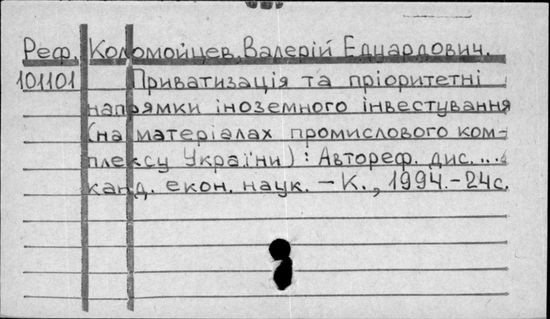 Реф. Коломойцев, Валерій Едуардович.
101101 Приватизація та пріоритетні
напрямки іноземного інвестування
(на матеріалах промислового ком-
плексу України) : Автореф. дис. ...
канд. екон. наук. – К., 1994. - 24с.